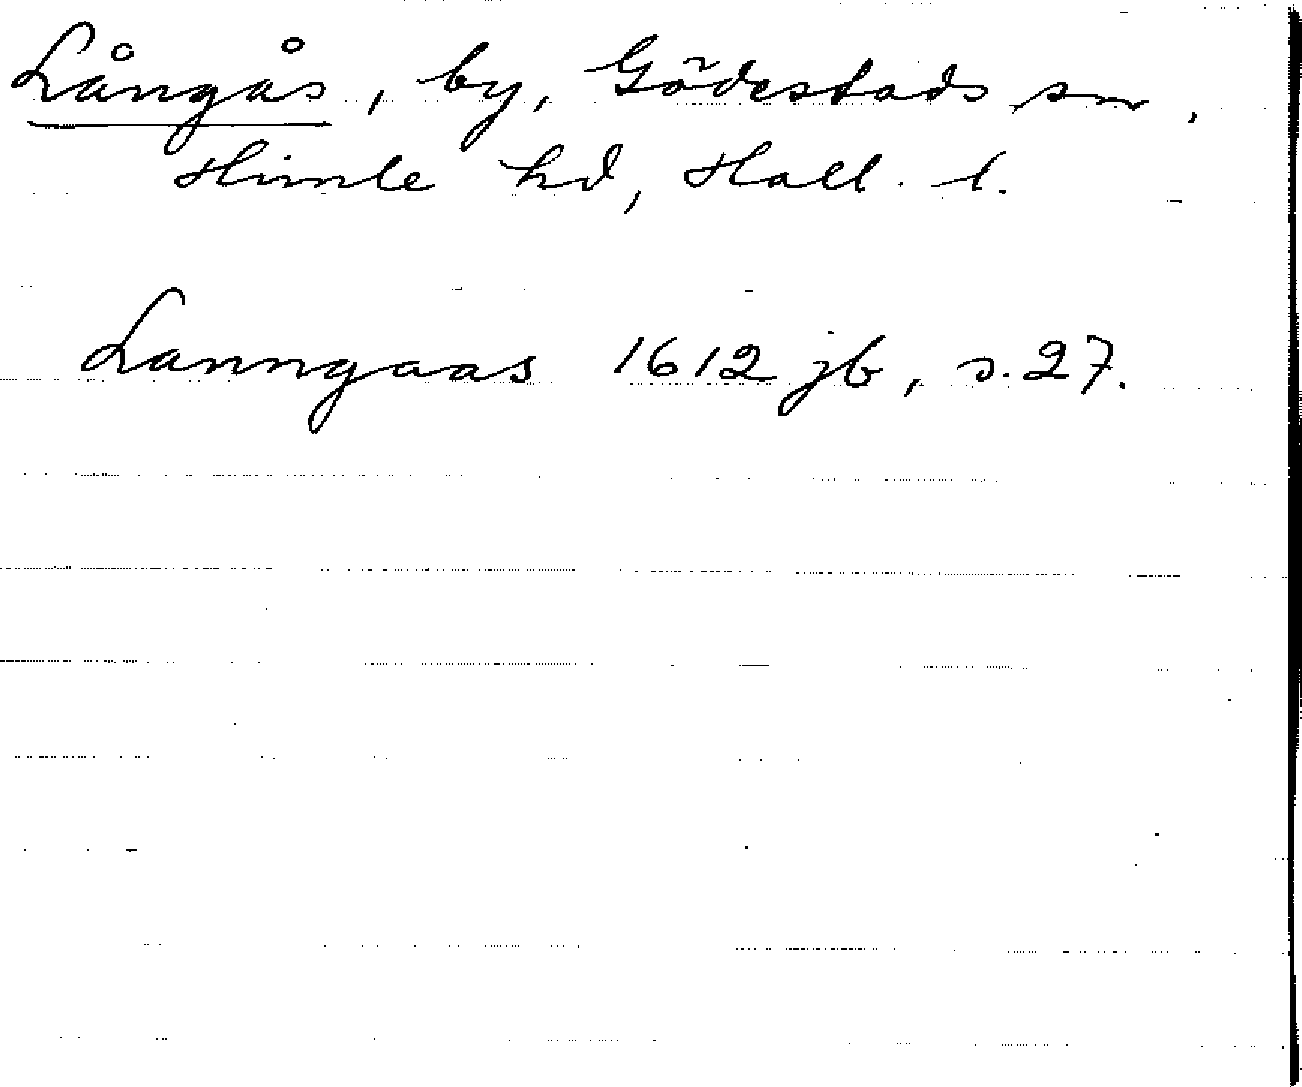 Långås, by, Gödestads sn,
Himle hd, Hall. l.
Lanngaas 1612 jb, s. 27.